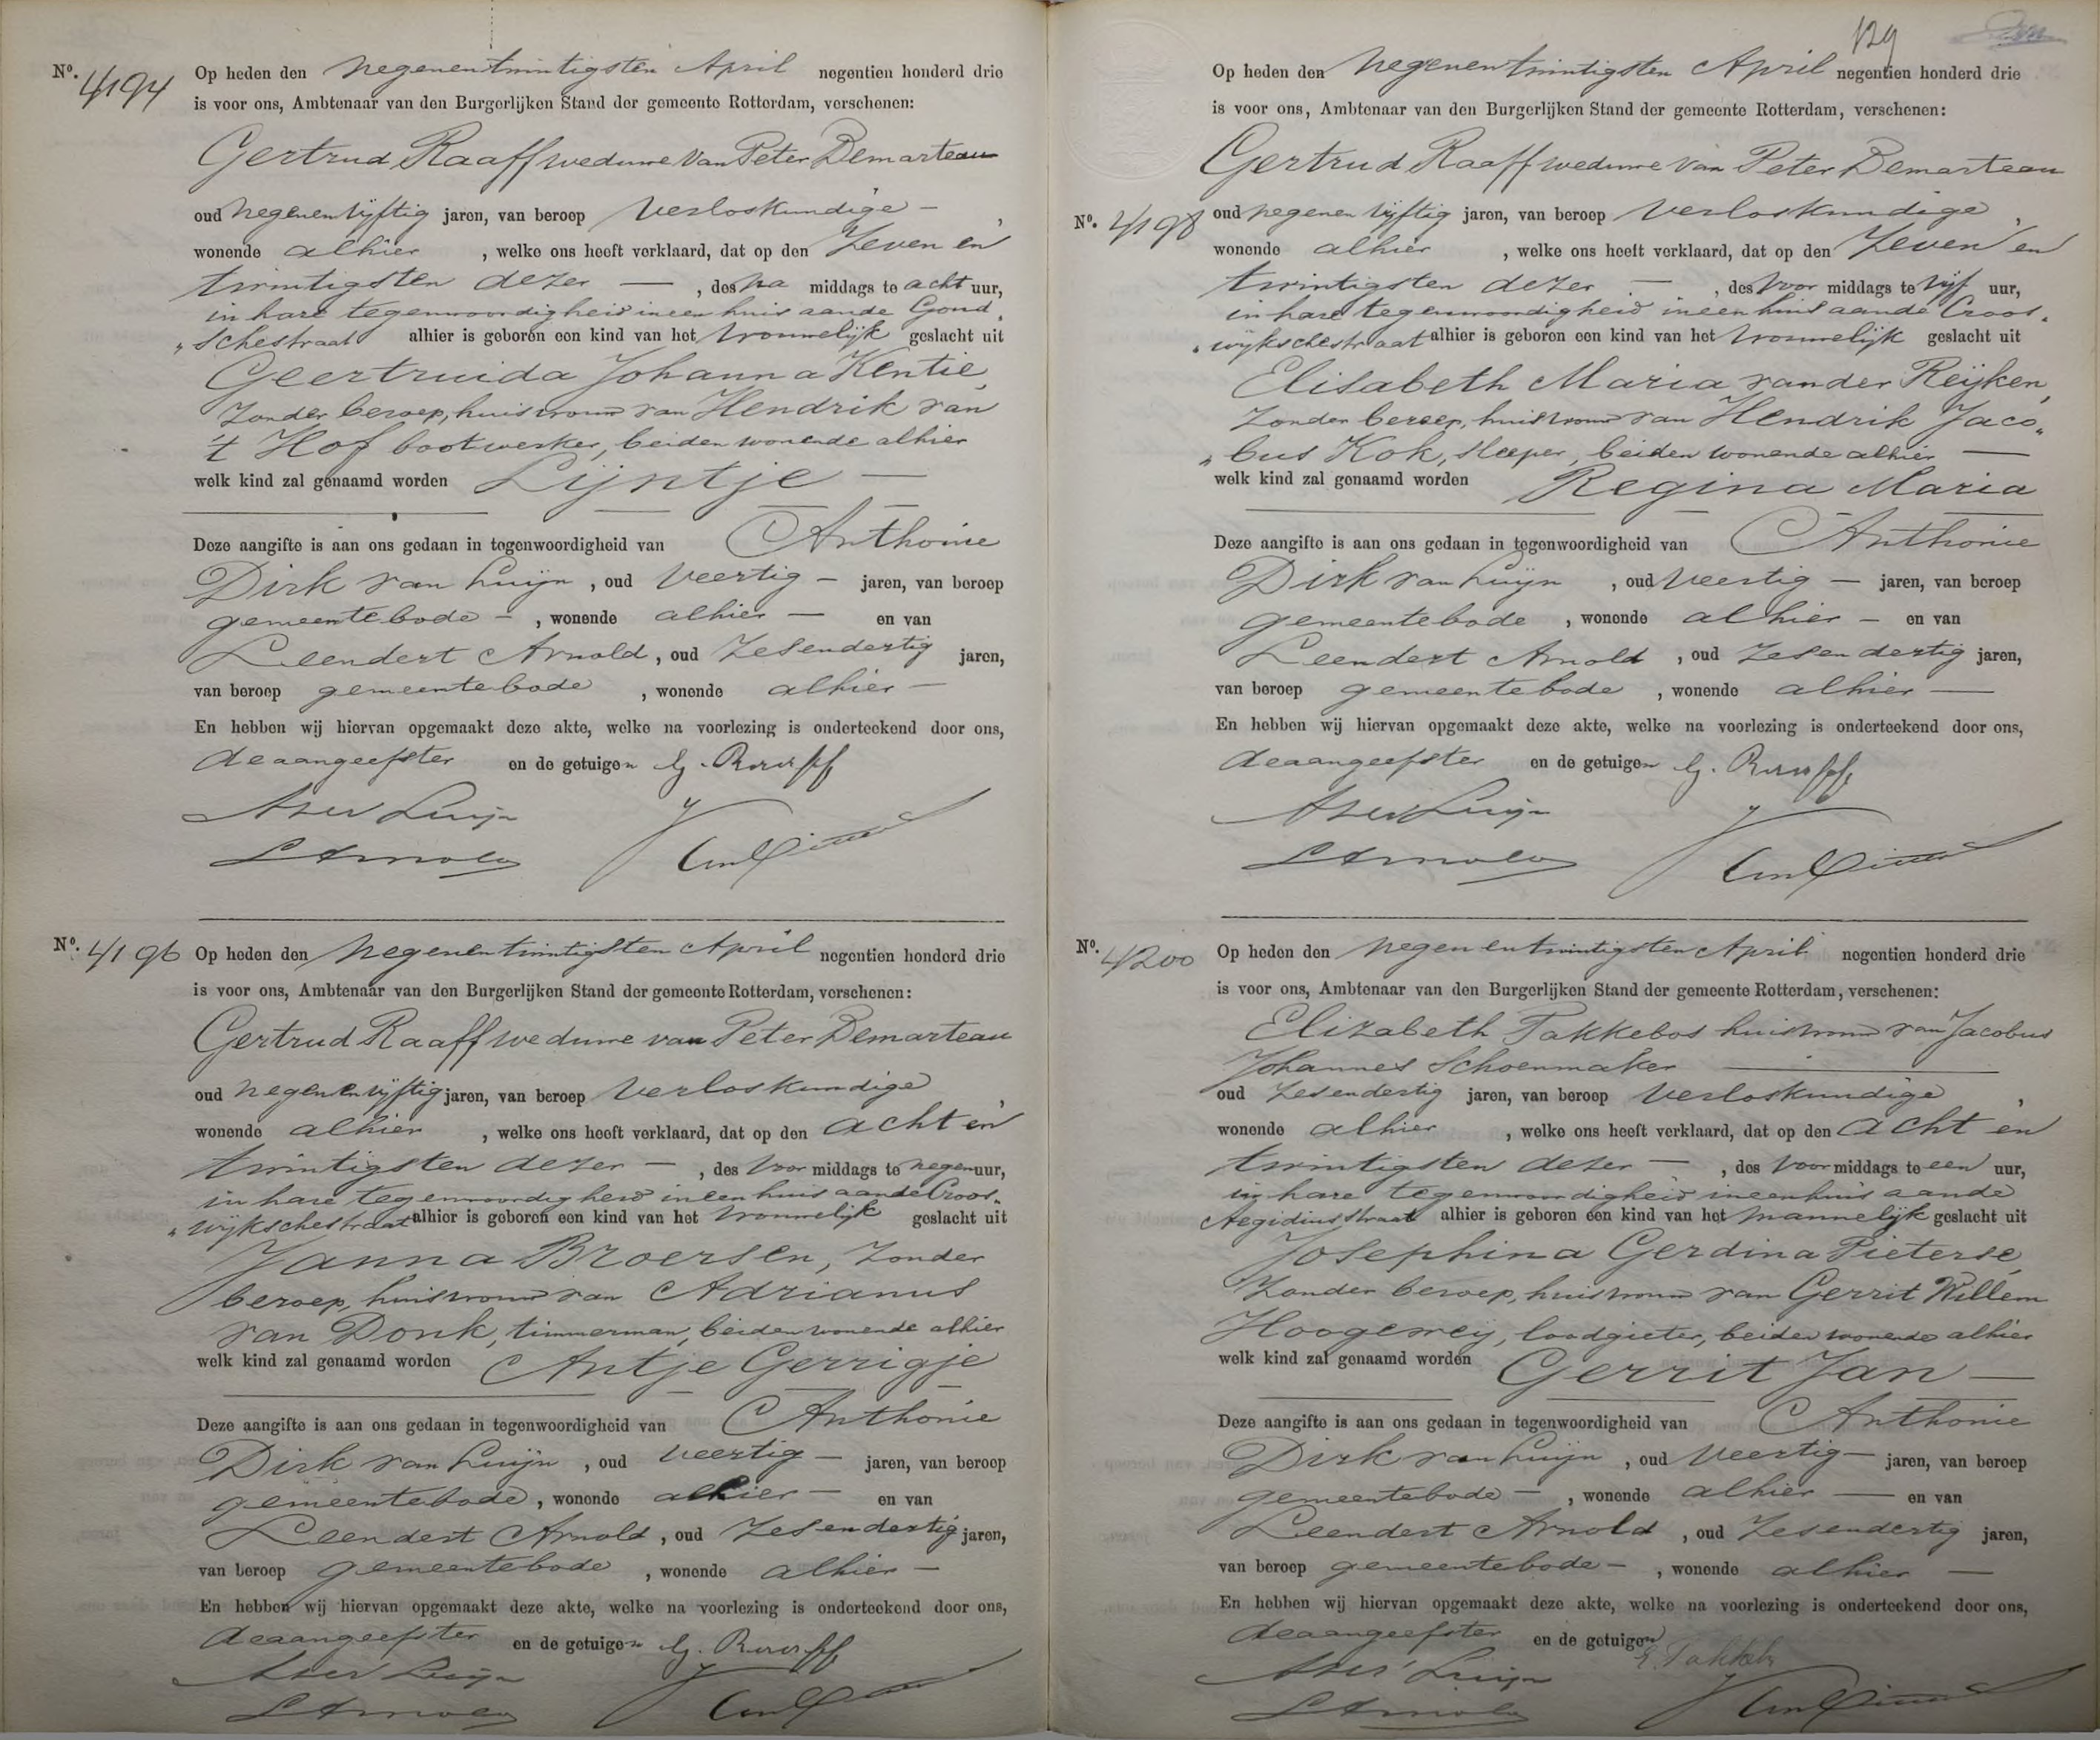 Nº. 4194 Op heden den negenentwintigsten April negentien honderd drie
is voor ons, Ambtenaar van den Burgerlijken Stand der gemeente Rotterdam, verschenen:
Gertrud Raaff weduwe van Peter Demarteau
oud negenenvijftig jaren, van beroep verloskundige - ,
wonende alhier , welke ons heeft verklaard, dat op den zeven en
twintigsten dezer — , des na middags te acht uur,
in hare tegenwoordigheid in een huis aan de Goud„
„schestraat alhier is geboren een kind van het vrouwelijk geslacht uit
Geertruida Johanna Kentie,
zonder beroep, huisvrouw van Hendrik van
't Hof bootwerker, beiden wonende alhier
welk kind zal genaamd worden Lijntje —
Deze aangifte is aan ons gedaan in tegenwoordigheid van Anthonie
Dirk van Luijn , oud veertig — jaren, van beroep
gemeentebode - , wonende alhier — en van
Leendert Arnold , oud zesendertig jaren,
van beroep gemeentebode , wonende alhier —
En hebben wij hiervan opgemaakt deze akte, welke na voorlezing is onderteekend door ons,
de aangeefster en de getuigen G. Raaff
ADvLuijn
LArnold
Nº. 4196 Op heden den negenentwintigsten April negentien honderd drie
is voor ons, Ambtenaar van den Burgerlijken Stand der gemeente Rotterdam, verschenen:
Gertrud Raaff weduwe van Peter Demarteau
oud negenenvijftig jaren, van beroep verloskundige ,
wonende alhier , welke ons heeft verklaard, dat op den acht en
twintigsten dezer — , des voor middags te negen uur,
in hare tegenwoordigheid in een huis aan de Croos„
„wijkschestraat alhier is geboren een kind van het vrouwelijk geslacht uit
Janna Broersen, zonder
beroep, huisvrouw van Adrianus
van Donk, timmerman, beiden wonende alhier
welk kind zal genaamd worden Antje Gerrigje
Deze aangifte is aan ons gedaan in tegenwoordigheid van Anthonie
Dirk van Luijn , oud veertig — jaren, van beroep
gemeentebode , wonende alhier — en van
Leendert Arnold , oud zesendertig jaren,
van beroep gemeentebode , wonende alhier —
En hebben wij hiervan opgemaakt deze akte, welke na voorlezing is onderteekend door ons,
de aangeefster en de getuigen G. Raaff
ADvLuijn
LArnold
129
Op heden den negenentwintigsten April negentien honderd drie
is voor ons, Ambtenaar van den Burgerlijken Stand der gemeente Rotterdam, verschenen:
Gertrud Raaff weduwe van Peter Demarteau
Nº. 4198 oud negenenvijftig jaren, van beroep verloskundige ,
wonende alhier , welke ons heeft verklaard, dat op den zeven en
twintigsten dezer — , des voor middags te vijf uur,
in hare tegenwoordigheid in een huis aan de Croos„
„wijkschestraat alhier is geboren een kind van het vrouwelijk geslacht uit
Elisabeth Maria van der Reijken,
zonder beroep, huisvrouw van Hendrik Jaco„
„bus Kok, sleeper, beiden wonende alhier —
welk kind zal genaamd worden Regina Maria
Deze aangifte is aan ons gedaan in tegenwoordigheid van Anthonie
Dirk van Luijn , oud veertig — jaren, van beroep
gemeentebode , wonende alhier — en van
Leendert Arnold , oud zesendertig jaren,
van beroep gemeentebode , wonende alhier —
En hebben wij hiervan opgemaakt deze akte, welke na voorlezing is onderteekend door ons,
de aangeefster en de getuigen G. Raaff
ADvLuijn
LArnold
Nº. 4200 Op heden den negenentwintigsten April negentien honderd drie
is voor ons, Ambtenaar van den Burgerlijken Stand der gemeente Rotterdam, verschenen:
Elizabeth Takkebos huisvrouw van Jacobus
Johannes Schoenmaker —
oud zesendertig jaren, van beroep verloskundige ,
wonende alhier , welke ons heeft verklaard, dat op den acht en
twintigsten dezer — , des voor middags te een uur,
in hare tegenwoordigheid in een huis aan de
Aegidiusstraat alhier is geboren een kind van het mannelijk geslacht uit
Josephina Gerdina Pieterse,
zonder beroep, huisvrouw van Gerrit Willem
Hoogeweij, loodgieter, beiden wonende alhier
welk kind zal genaamd worden Gerrit Jan —
Deze aangifte is aan ons gedaan in tegenwoordigheid van Anthonie
Dirk van Luijn , oud veertig — jaren, van beroep
gemeentebode — , wonende alhier — en van
Leendert Arnold , oud zesendertig jaren,
van beroep gemeentebode — , wonende alhier —
En hebben wij hiervan opgemaakt deze akte, welke na voorlezing is onderteekend door ons,
de aangeefster en de getuigen E. Takkebos
ADvLuijn
LArnold